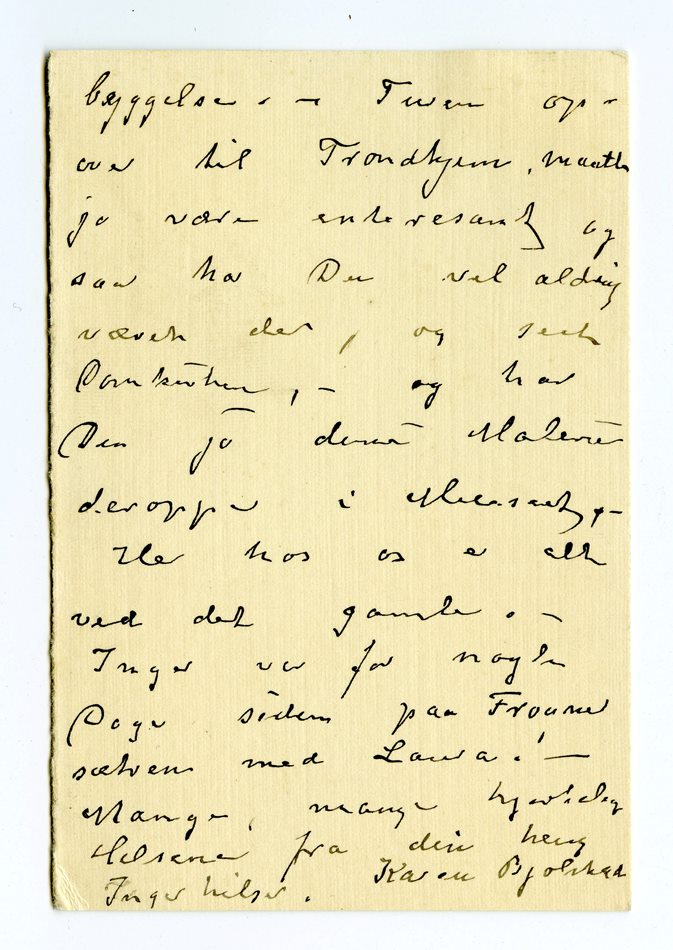 byggelse. – Turen op-
over til Trondhjem, maatte
jo være enteresant, og
saa ha Du vel aldrig
været der, og seet
Domkirken, – og har
Du jo denne Malerie
deroppe i
Her hos os e alt
ved det gamle. –
Inger var for nogle
Dage siden paa Frogner
sætren med Laura. –
Mange, mange hjertelig
Helsener fra din heng
Inger hilser. Karen Bjølstad